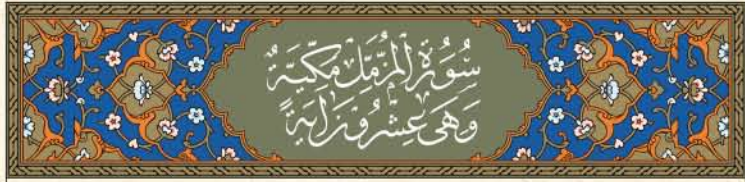 سُورَةُ الْمُزَّمِّلِ مَكِّيَّةٌ
وَهِيَ عِشْرُونَ آيَةً